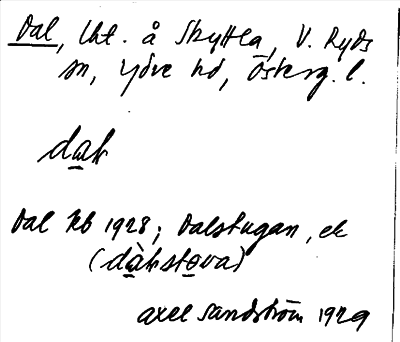 Dal, lht. å Skyttla, V. Ryds
sn, Ydre hd, Österg. l.
dak
Dal Kb 1928; Dalstugan, ek
(dàkstova)
Axel Sandström 1929